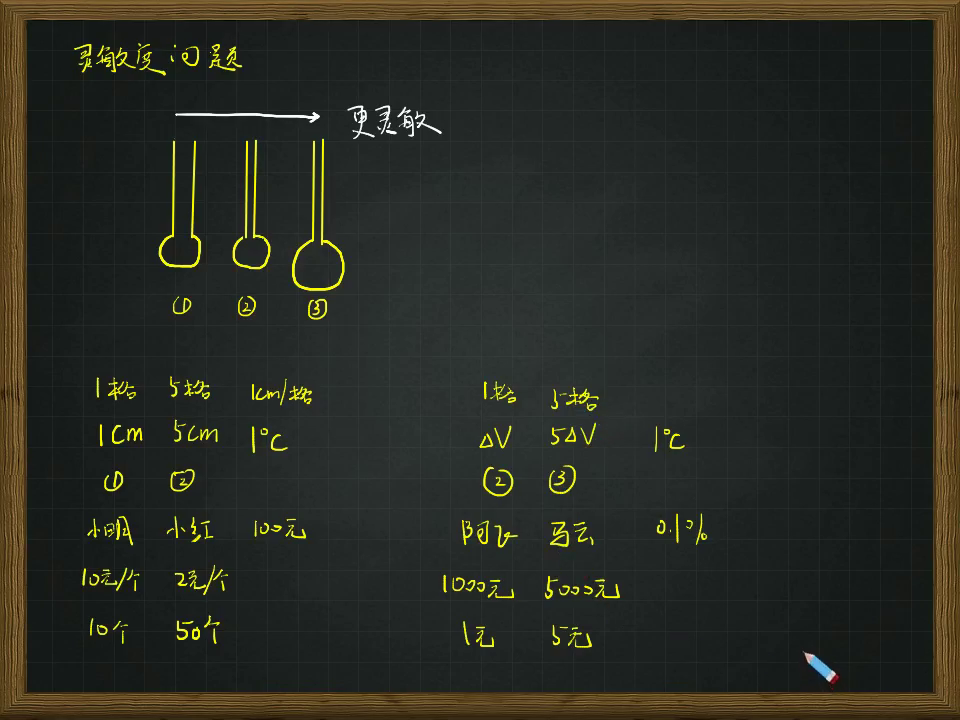 灵敏度问题
更灵敏
① ② ③
1格 5格 1cm/格
1cm 5cm 1°C
① ②
小明 小红 100元
10元/个 2元/个
10个 50个
1格 5格
ΔV 5ΔV 1°C
② ③
阿飞 马云 0.1%
1000元 5000元
1元 5元